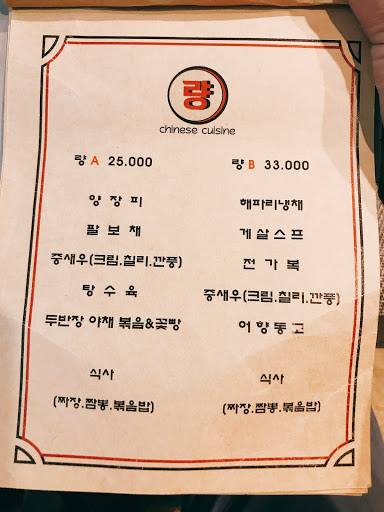 량
chinese cuisine
량 A 25.000
양 장 피
팔 보 채
중새우(크림.칠리.깐풍)
탕 수 육
두반장 야채 볶음&꽃빵
식사
(짜장.짬뽕.볶음밥)
량 B 33.000
해파리냉채
게살스프
전 가 복
중새우(크림.칠리.깐풍)
어향동고
식사
(짜장.짬뽕.볶음밥)